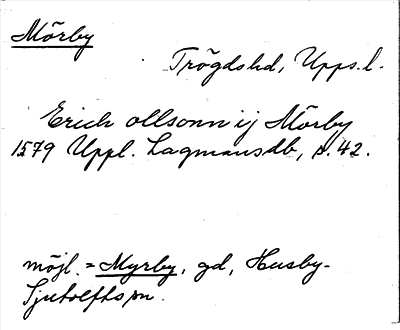 Mörby
Trögdshd, Upps.l.
Erich ollsonn ij Mörby
1579 Uppl. Lagmansdb, s. 42.
möjl. = Myrby, gd, Husby-
Sjutolfts sn.